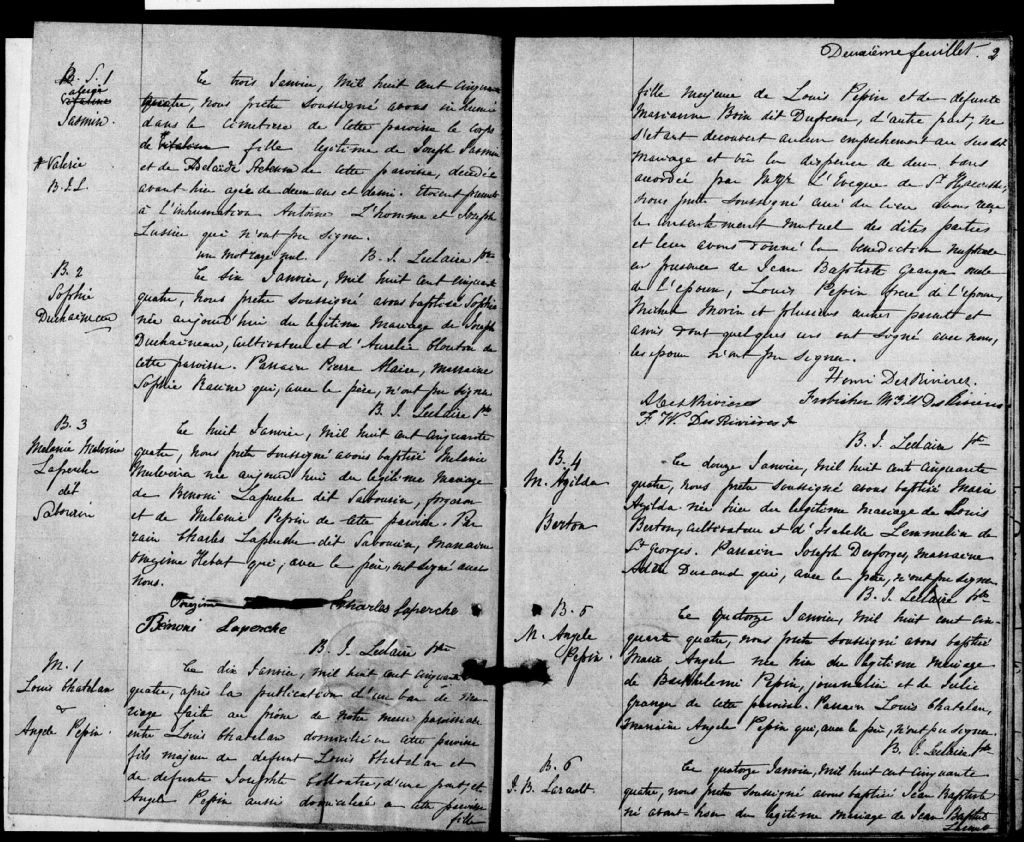 B. S. 1
Jasmin.
# Valerie
B. J. L.
Le trois Janvier, mil huit cent cinquante
quatre, nous pretre soussigné avons inhumé
dans le cimetiere de cette paroisse le corps
de fille legitime de Joseph Jasmin
et de Adelaïde de cette paroisse, decedée
avant hier agée de deux ans et demi. Etoient presents
à l'inhumation Antoine L'homme et Joseph
Lussier qui n'ont pu signer.
un mot rayé nul. B. J. Leclaire Ptre
B. 2
Sophie
Duchaineau
Le six Janvier, mil huit cent cinquante
quatre, nous pretre soussigné avons baptisé Sophie
née aujourd'hui du legitime mariage de Joseph
Duchaineau, cultivateur et d'Aurelie de
cette paroisse. Parrain Pierre Alaire, marraine
Sophie qui, avec le père, n'ont pu signer
B. J. Leclaire Ptre
B. 3
Melanie Malvina
Laperche
dit
Sabourin
Le huit Janvier, mil huit cent cinquante
quatre, nous pretre soussigné avons baptisé Melanie
née aujourd'hui du legitime mariage
de Benoni Laperche dit Sabourin, forgeron
et de Melanie Pepin de cette paroisse. Par
rain Charles Laperche dit Sabourin, marraine
Onezime Hebert qui, avec le père, ont signé avec
nous.
Onezime Charles Laperche
Bénoni Laperche
B. J. Leclaire Ptre
M. 1
Louis Chatelan
&
Angele Pepin.
Le dix Janvier, mil huit cent cinquante
quatre, après la publication d'un ban de ma
riage faite au prône de notre messe paroissiale
entre Louis Chatelan domicilié en cette paroisse
fils majeur de defunt Louis Chatelan et
de defunte Josephte d'une part, et
Angele Pepin aussi domiciliée en cette paroisse
fille
Deuxième feuillet. 2
fille majeure de Louis Pepin et de defunte
Marianne Boin dit Dufresne, d'autre part, ne
s'etant decouvert aucun empechement au susdit
mariage et vû la dispense de deux bans
accordée par Mgr L'Eveque de St Hyacinthe,
nous pretre soussigné curé du lieu avons reçu
le consentement mutuel des dites parties
et leur avons donné la benediction nuptiale
en presence de Jean Baptiste Granger oncle
de l'epoux, Louis Pepin frere de l'epouse,
Michel Morin et plusieurs autres parents et
amis dont quelques uns ont signé avec nous,
les epoux n'ont pu signer.
Henri DesRivieres
DesRivieres Frobisher DesRivieres
F. W. DesRivières Jr
B. J. Leclaire Ptre
B. 4
M. Agilda
Berton
Le douze Janvier, mil huit cent cinquante
quatre, nous pretre soussigné avons baptisé Marie
Agilda née hier du legitime mariage de Louis
Berton, cultivateur et d'Isabelle Lemmelin de
St Georges. Parrain Joseph Desforges, marraine
Durand qui, avec le père, n'ont pu signer
B. J. Leclaire Ptre
B. 5
M. Angele
Pepin.
Le quatorze Janvier, mil huit cent cin-
quante quatre, nous pretre soussigné avons baptisé
Marie Angele née hier du legitime mariage
de Barthelemi Pepin, journalier et de Julie
Granger de cette paroisse. Parrain Louis Chatelan,
marraine Angele Pepin qui, avec le père, n'ont pu signer.
B. J. Leclaire Ptre
B. 6
J. B. Larault.
Le quatorze Janvier, mil huit cent cinquante
quatre, nous pretre soussigné avons baptisé Jean Baptiste
né avant hier du legitime mariage de Jean Baptiste